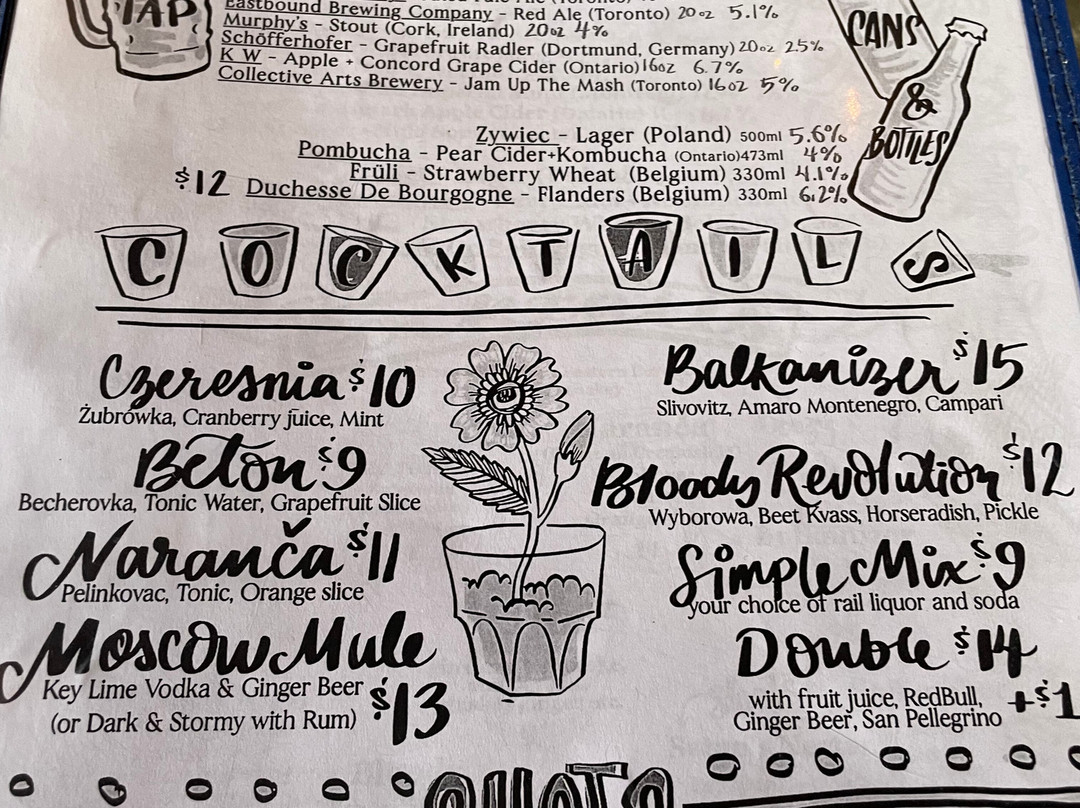 TAP
Eastbound Brewing Company - Red Ale (Toronto) 20oz 5.1%
Murphy's - Stout (Cork, Ireland) 20oz 4%
Schöfferhofer - Grapefruit Radler (Dortmund, Germany) 20oz 2.5%
KW - Apple + Concord Grape Cider (Ontario) 16oz 6.7%
Collective Arts Brewery - Jam Up The Mash (Toronto) 16oz 5%
CANS
&
BOTTLES
Zywiec - Lager (Poland) 500ml 5.6%
Pombucha - Pear Cider+Kombucha (Ontario) 473ml 4%
Früli - Strawberry Wheat (Belgium) 330ml 4.1%
$12 Duchesse De Bourgogne - Flanders (Belgium) 330ml 6.2%
COCKTAILS
Czeresnia $10
Żubrówka, Cranberry juice, Mint
Beton $9
Becherovka, Tonic Water, Grapefruit Slice
Naranča $11
Pelinkovac, Tonic, Orange slice
Moscow Mule
Key Lime Vodka & Ginger Beer $13
(or Dark & Stormy with Rum)
Balkanizer $15
Slivovitz, Amaro Montenegro, Campari
Bloody Revolution $12
Wyborowa, Beet Kvass, Horseradish, Pickle
Simple Mix $9
your choice of rail liquor and soda
Double $14
with fruit juice, RedBull, +$1
Ginger Beer, San Pellegrino